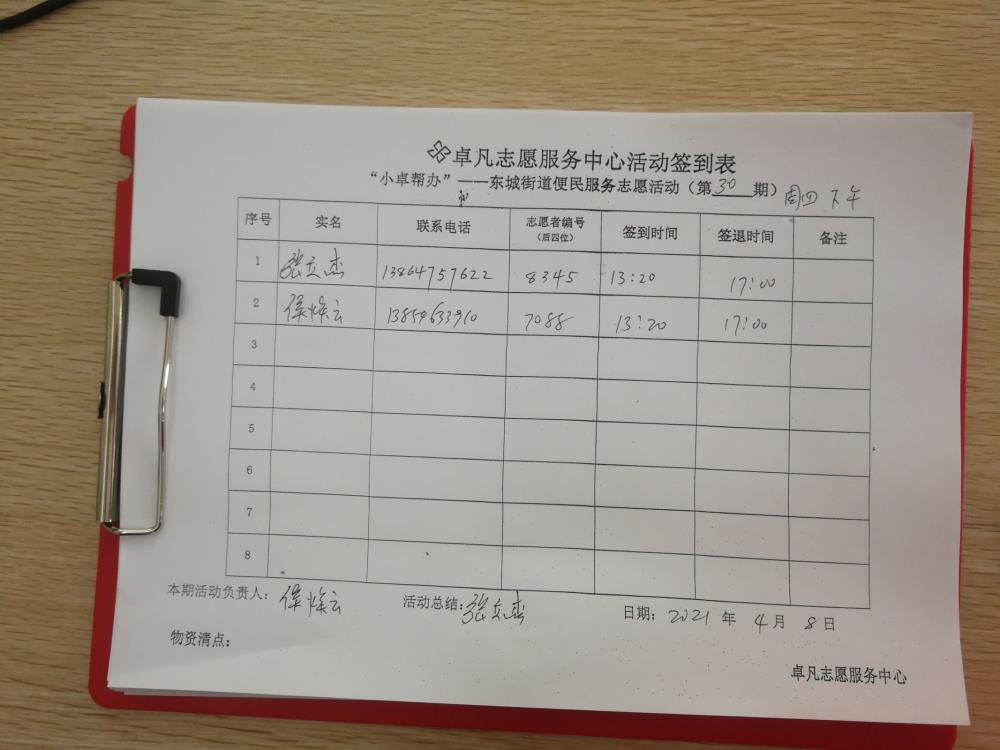 卓凡志愿服务中心活动签到表
“小卓帮办”——东城街道便民服务志愿活动（第30期）周四下午
序号 实名 联系电话 志愿者编号（后四位） 签到时间 签退时间 备注
1 张立杰 13864757622 8345 13:20 17:00
2 13854633910 7088 13:20 17:00
3
4
5
6
7
8
本期活动负责人： 活动总结：张立杰 日期：2021年4月8日
物资清点：
卓凡志愿服务中心